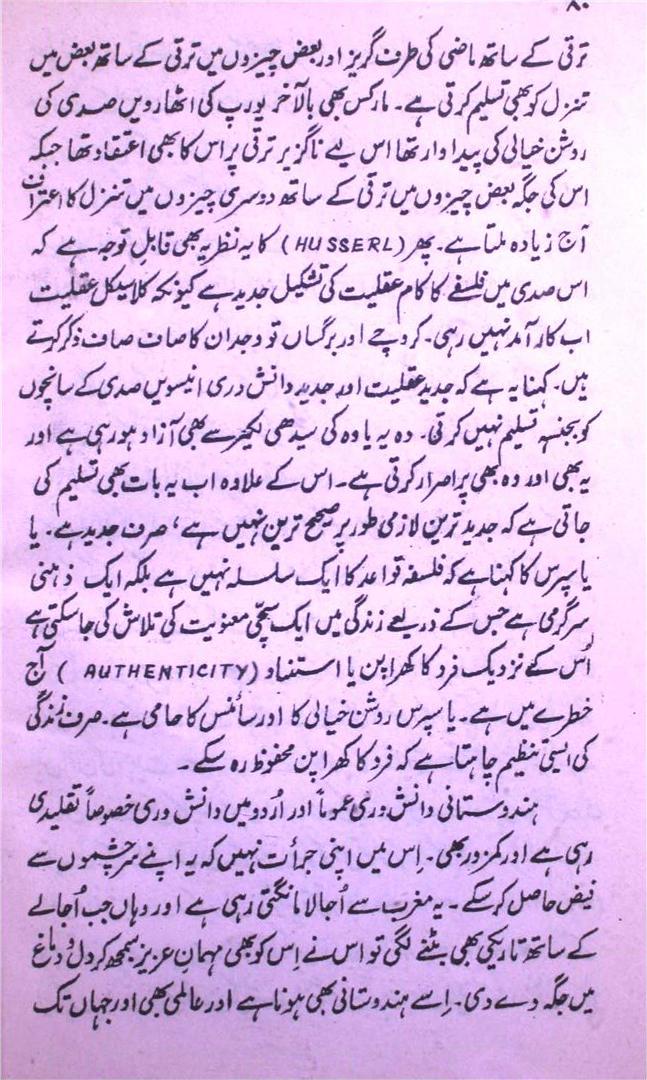 ۸۰
ترقی کے ساتھ ماضی کی طرف گریز اور بعض چیزوں میں ترقی کے ساتھ بعض میں
تنزل کو بھی تسلیم کرتی ہے۔ مارکس بھی بالآخر یورپ کی اٹھارویں صدی کی
روشن خیالی کی پیداوار تھا اس لیے ناگزیر ترقی پر اس کا بھی اعتقاد تھا جبکہ
اس کی جگہ بعض چیزوں میں ترقی کے ساتھ دوسری چیزوں میں تنزل کا اعتراف
آج زیادہ ملتا ہے۔ پھر (HUSSERL) کا یہ نظریہ بھی قابل توجہ ہے کہ
اس صدی میں فلسفے کا کام عقلیت کی تشکیل جدید ہے کیونکہ کلاسیکل عقلیت
اب کارآمد نہیں رہی۔ کروچے اور برگساں تو وجدان کا صاف صاف ذکر کرتے
ہیں۔ کہنا یہ ہے کہ جدید عقلیت اور جدید دانش وری انیسویں صدی کے سانچوں
کو بجنسہٖ تسلیم نہیں کرتی۔ وہ یہ یا وہ کی سیدھی لکیر سے بھی آزاد ہو رہی ہے اور
یہ بھی اور وہ بھی پر اصرار کرتی ہے۔ اس کے علاوہ اب یہ بات بھی تسلیم کی
جاتی ہے کہ جدید ترین لازمی طور پر صحیح ترین نہیں ہے، صرف جدید ہے۔ یا
یاسپرس کا کہنا ہے کہ فلسفہ قواعد کا ایک سلسلہ نہیں ہے بلکہ ایک ذہنی
سرگرمی ہے جس کے ذریعے زندگی میں ایک سچی معنویت کی تلاش کی جاسکتی ہے
اُس کے نزدیک فرد کا کھراپن یا استناد (AUTHENTICITY) آج
خطرے میں ہے۔ یاسپرس روشن خیالی کا اور سائنس کا حامی ہے۔ صرف زندگی
کی ایسی تنظیم چاہتا ہے کہ فرد کا کھراپن محفوظ رہ سکے۔
ہندوستانی دانش وری عموماً اور اُردو میں دانش وری خصوصاً تقلیدی
رہی ہے اور کمزور بھی۔ اِس میں اپنی جرأت نہیں کہ یہ اپنے سرچشموں سے
فیض حاصل کر سکے۔ یہ مغرب سے اُجالا مانگتی رہی ہے اور وہاں جب اُجالے
کے ساتھ تاریکی بھی بٹنے لگی تو اس نے اِس کو بھی مہمانِ عزیز سمجھ کر دل و دماغ
میں جگہ دے دی۔ اِسے ہندوستانی بھی ہونا ہے اور عالمی بھی اور جہاں تک